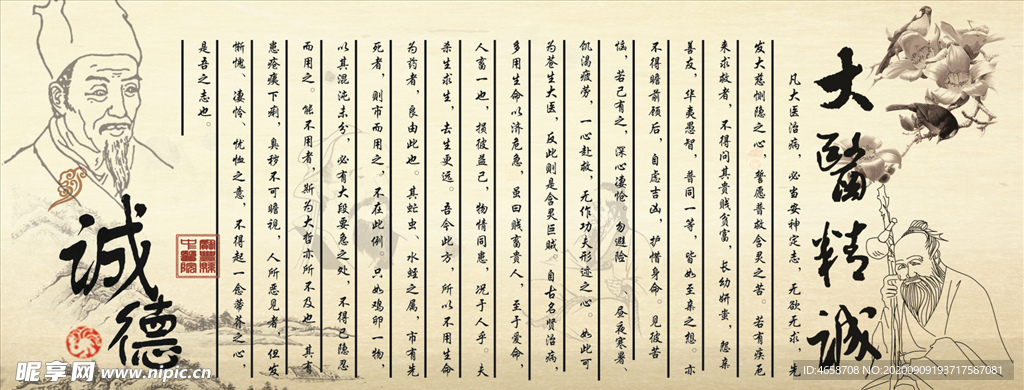 大醫精誠
凡大医治病，必当安神定志，无欲无求，先
发大慈恻隐之心，誓愿普救含灵之苦。若有疾厄
来求救者，不得问其贵贱贫富，长幼妍蚩，怨亲
善友，华夷愚智，普同一等，皆如至亲之想。亦
不得瞻前顾后，自虑吉凶，护惜身命。见彼苦
恼，若己有之，深心凄怆，勿避险、昼夜寒暑、
饥渴疲劳，一心赴救，无作功夫形迹之心。如此可
为苍生大医，反此则是含灵巨贼。自古名贤治病，
多用生命以济危急，虽曰贱畜贵人，至于爱命，
人畜一也，损彼益己，物情同患，况于人乎。夫
杀生求生，去生更远。吾今此方，所以不用生命
为药者，良由此也。其虻虫、水蛭之属，市有先
死者，则市而用之，不在此例。只如鸡卵一物，
以其混沌未分，必有大段要急之处，不得已隐忍
而用之。能不用者，斯为大哲亦所不及也。其有
患疮痍下痢，臭秽不可瞻视，人所恶见者，但发
惭愧、凄怜、忧恤之意，不得起一念蒂芥之心，
是吾之志也。
诚德
昵享网 www.nipic.cn
ID:4658708 NO:20200909193717567081